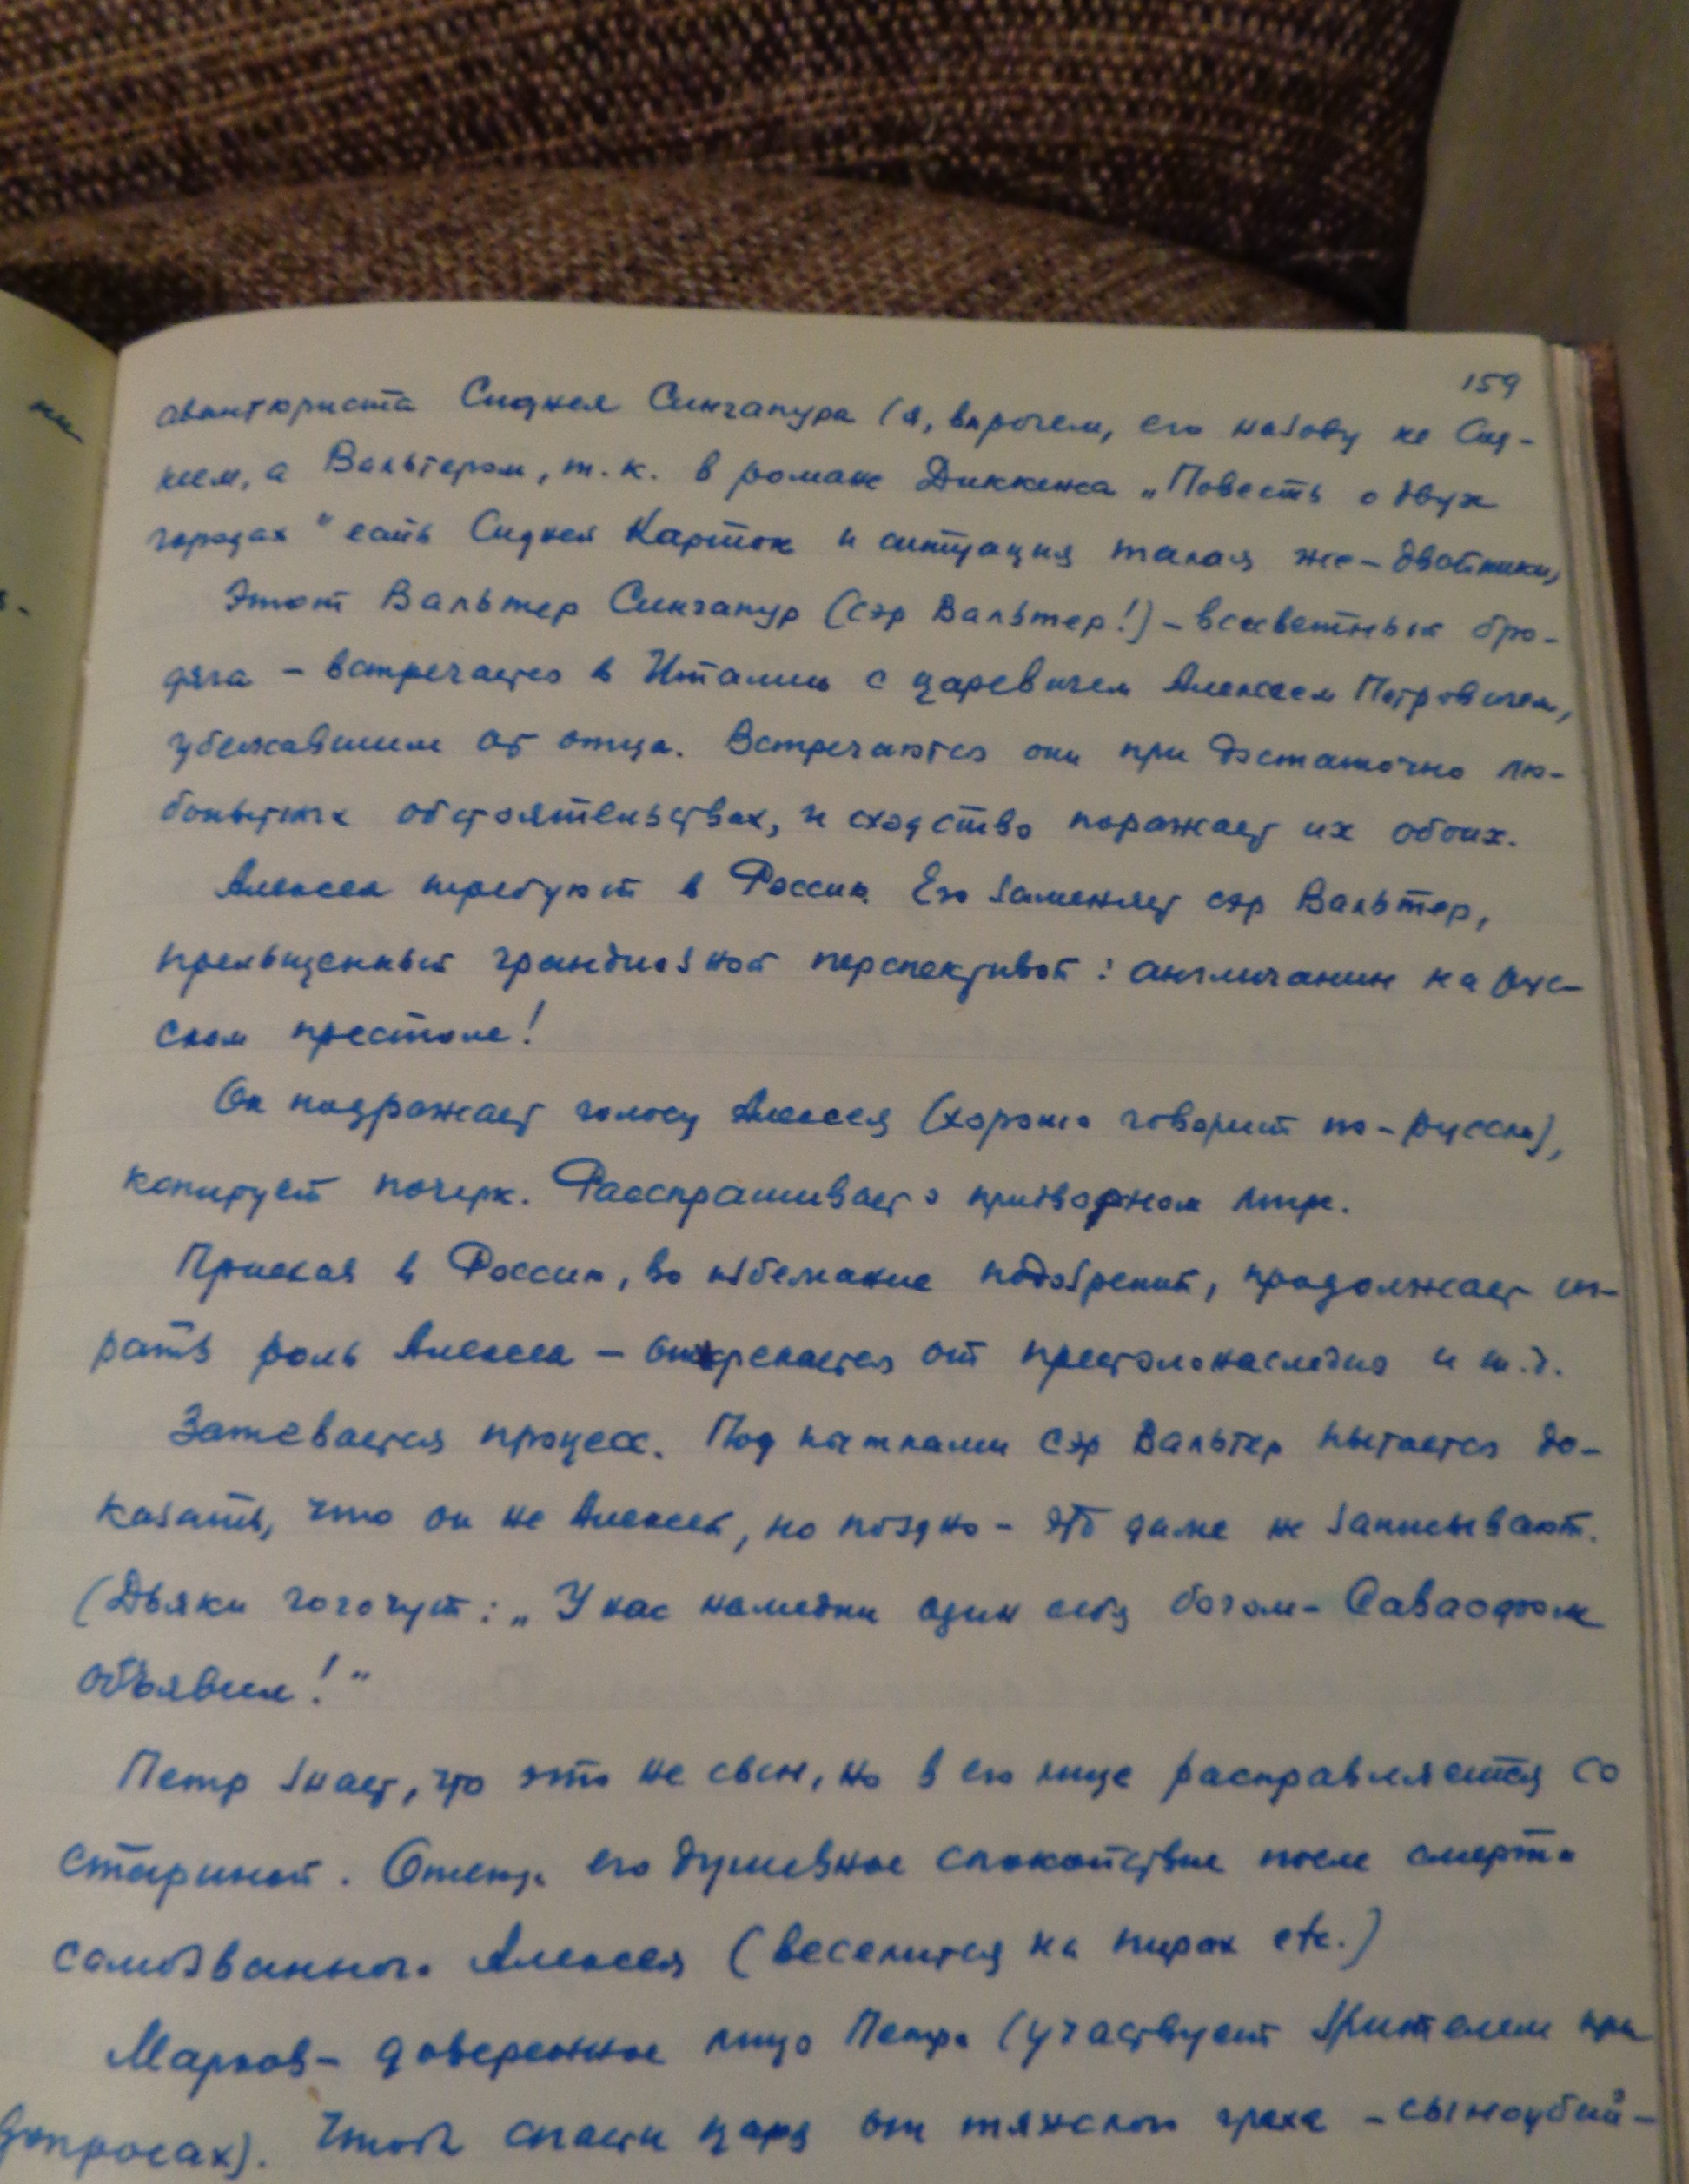 159
авантюриста Сиднея Сингапура (я, впрочем, его назову не Сид-
неем, а Вальтером, т.к. в романе Диккенса „Повесть о двух
городах" есть Сидней Картон и ситуация такая же – двойники,
Этот Вальтер Сингапур (сэр Вальтер!) – всесветный бро-
дяга – встречается в Италии с царевичем Алексеем Петровичем,
убежавшим от отца. Встречаются они при достаточно лю-
бопытных обстоятельствах, и сходство поражает их обоих.
Алексея требуют в Россию. Его заменяет сэр Вальтер,
прельщенный грандиозной перспективой: англичанин на рус-
ском престоле!
Он подражает голосу Алексея (хорошо говорит по-русски),
копирует почерк. Расспрашивает о придворном мире.
Приехав в Россию, во избежание подозрений, продолжает иг-
рать роль Алексея – отрекается от престолонаследия и т.д.
Затевается процесс. Под пытками сэр Вальтер пытается до-
казать, что он не Алексей, но поздно – это даже не записывают.
(Дьяки гогочут: „У нас намедни один себя богом-Саваофом
объявил!"
Петр знает, что это не сын, но в его лице расправляется со
стариной. Отсюда его душевное спокойствие после смерти
самозванного Алексея (веселится на пирах etc.)
Марков – доверенное лицо Петра (участвует зрителем при
допросах). Чтоб спасти царя от тяжкого греха – сыноубий-